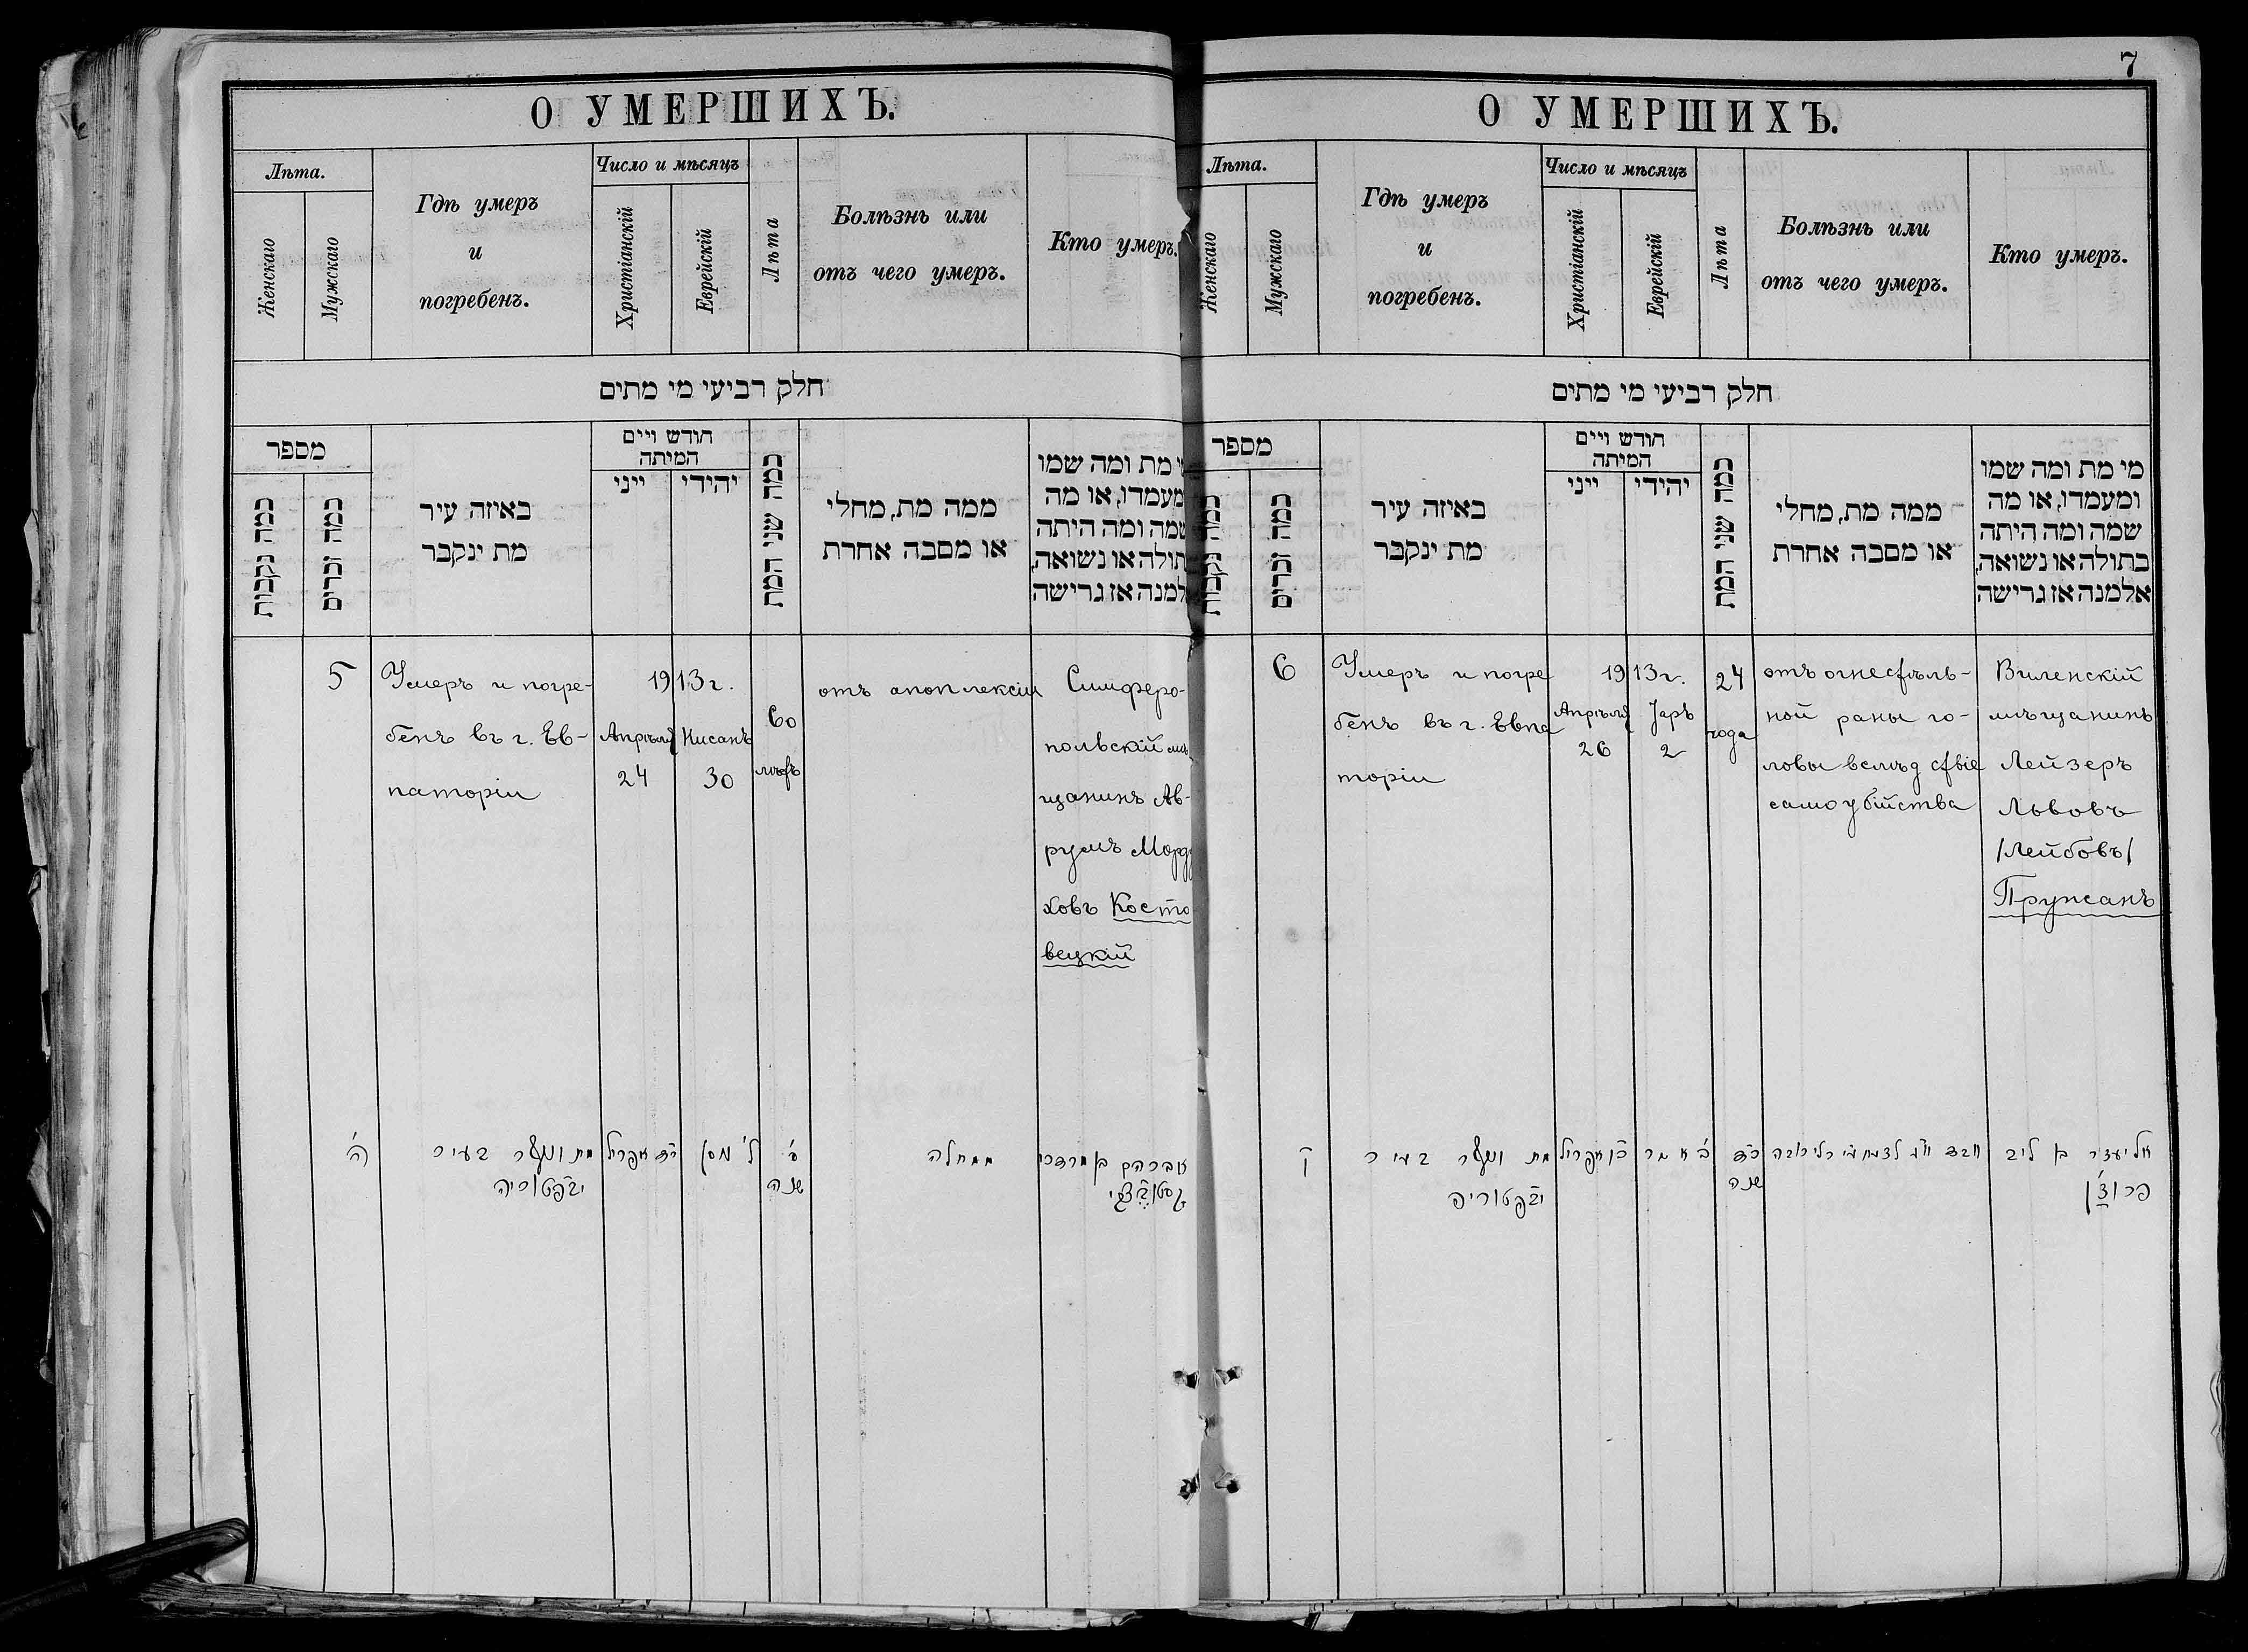 О УМЕРШИХЪ.
Лѣта.
Женскаго
Мужскаго
Гдѣ умеръ
и
погребенъ.
Число и мѣсяцъ
Христіанскій
Еврейскій
Лѣта
Болѣзнь или
отъ чего умеръ.
Кто умеръ.
חלק רביעי מי מתים
מספר
כמה נקבות
כמה זכרים
באיזה עיר
מת ינקבר
חודש ויים
המיתה
ייני
יהודי
כמה שני המת
ממה מת, מחלי
או מסבה אחרת
מת ומה שמו
מעמדו, או מה
שמה ומה היתה
תולה או נשואה,
למנה אז גרישה
5
Умеръ и погре-
бенъ въ г. Ев-
паторіи
1913 г.
Апрѣля
24
Нисанъ
30
60
лѣтъ
отъ апоплексіи
Симферо-
польскій мѣ
щанинъ Ав-
румъ Морду
ховъ Косто
вецкій
ה'
מת ונקבר בעיר
יבפטוריה
כד אפריל
ל' ניסן
ס'
שנה
ממחלה
אברהם בן מרדכי
7
О УМЕРШИХЪ.
Лѣта.
Женскаго
Мужскаго
Гдѣ умеръ
и
погребенъ.
Число и мѣсяцъ
Христіанскій
Еврейскій
Лѣта
Болѣзнь или
отъ чего умеръ.
Кто умеръ.
חלק רביעי מי מתים
מספר
כמה נקבות
כמה זכרים
באיזה עיר
מת ינקבר
חודש ויים
המיתה
ייני
יהודי
כמה שני המת
ממה מת, מחלי
או מסבה אחרת
מי מת ומה שמו
ומעמדו, או מה
שמה ומה היתה
בתולה או נשואה,
אלמנה אז גרישה
6
Умеръ и погре
бенъ въ г. Евпа
торіи
1913 г.
Апрѣля
26
Іаръ
2
24
года
отъ огнестрѣль-
ной раны го-
ловы вслѣдствіе
самоубійства
Виленскій
мѣщанинъ
Лейзеръ
Львовъ
/Лейбовъ/
Пружанъ
ו
מת ונקבר בעיר
יבפטוריה
כו אפריל
ב' אייר
כד
שנה
אליעזר בן ליב
פרוז'ן